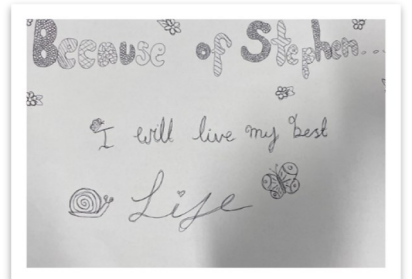 Because of Stephen...
I will live my best
Life